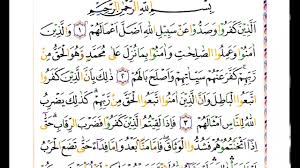 بِسْمِ اللَّهِ الرَّحْمَٰنِ الرَّحِيمِ
الَّذِينَ كَفَرُوا وَصَدُّوا عَن سَبِيلِ اللَّهِ أَضَلَّ أَعْمَالَهُمْ ۝١ وَالَّذِينَ
آمَنُوا وَعَمِلُوا الصَّالِحَاتِ وَآمَنُوا بِمَا نُزِّلَ عَلَىٰ مُحَمَّدٍ وَهُوَ الْحَقُّ مِن
رَّبِّهِمْ كَفَّرَ عَنْهُمْ سَيِّئَاتِهِمْ وَأَصْلَحَ بَالَهُمْ ۝٢ ذَٰلِكَ بِأَنَّ الَّذِينَ كَفَرُوا
اتَّبَعُوا الْبَاطِلَ وَأَنَّ الَّذِينَ آمَنُوا اتَّبَعُوا الْحَقَّ مِن رَّبِّهِمْ كَذَٰلِكَ يَضْرِبُ
اللَّهُ لِلنَّاسِ أَمْثَالَهُمْ ۝٣ فَإِذَا لَقِيتُمُ الَّذِينَ كَفَرُوا فَضَرْبَ الرِّقَابِ حَتَّىٰ
إِذَا أَثْخَنتُمُوهُمْ فَشُدُّوا الْوَثَاقَ فَإِمَّا مَنًّا بَعْدُ وَإِمَّا فِدَاءً حَتَّىٰ تَضَعَ الْحَرْبُ